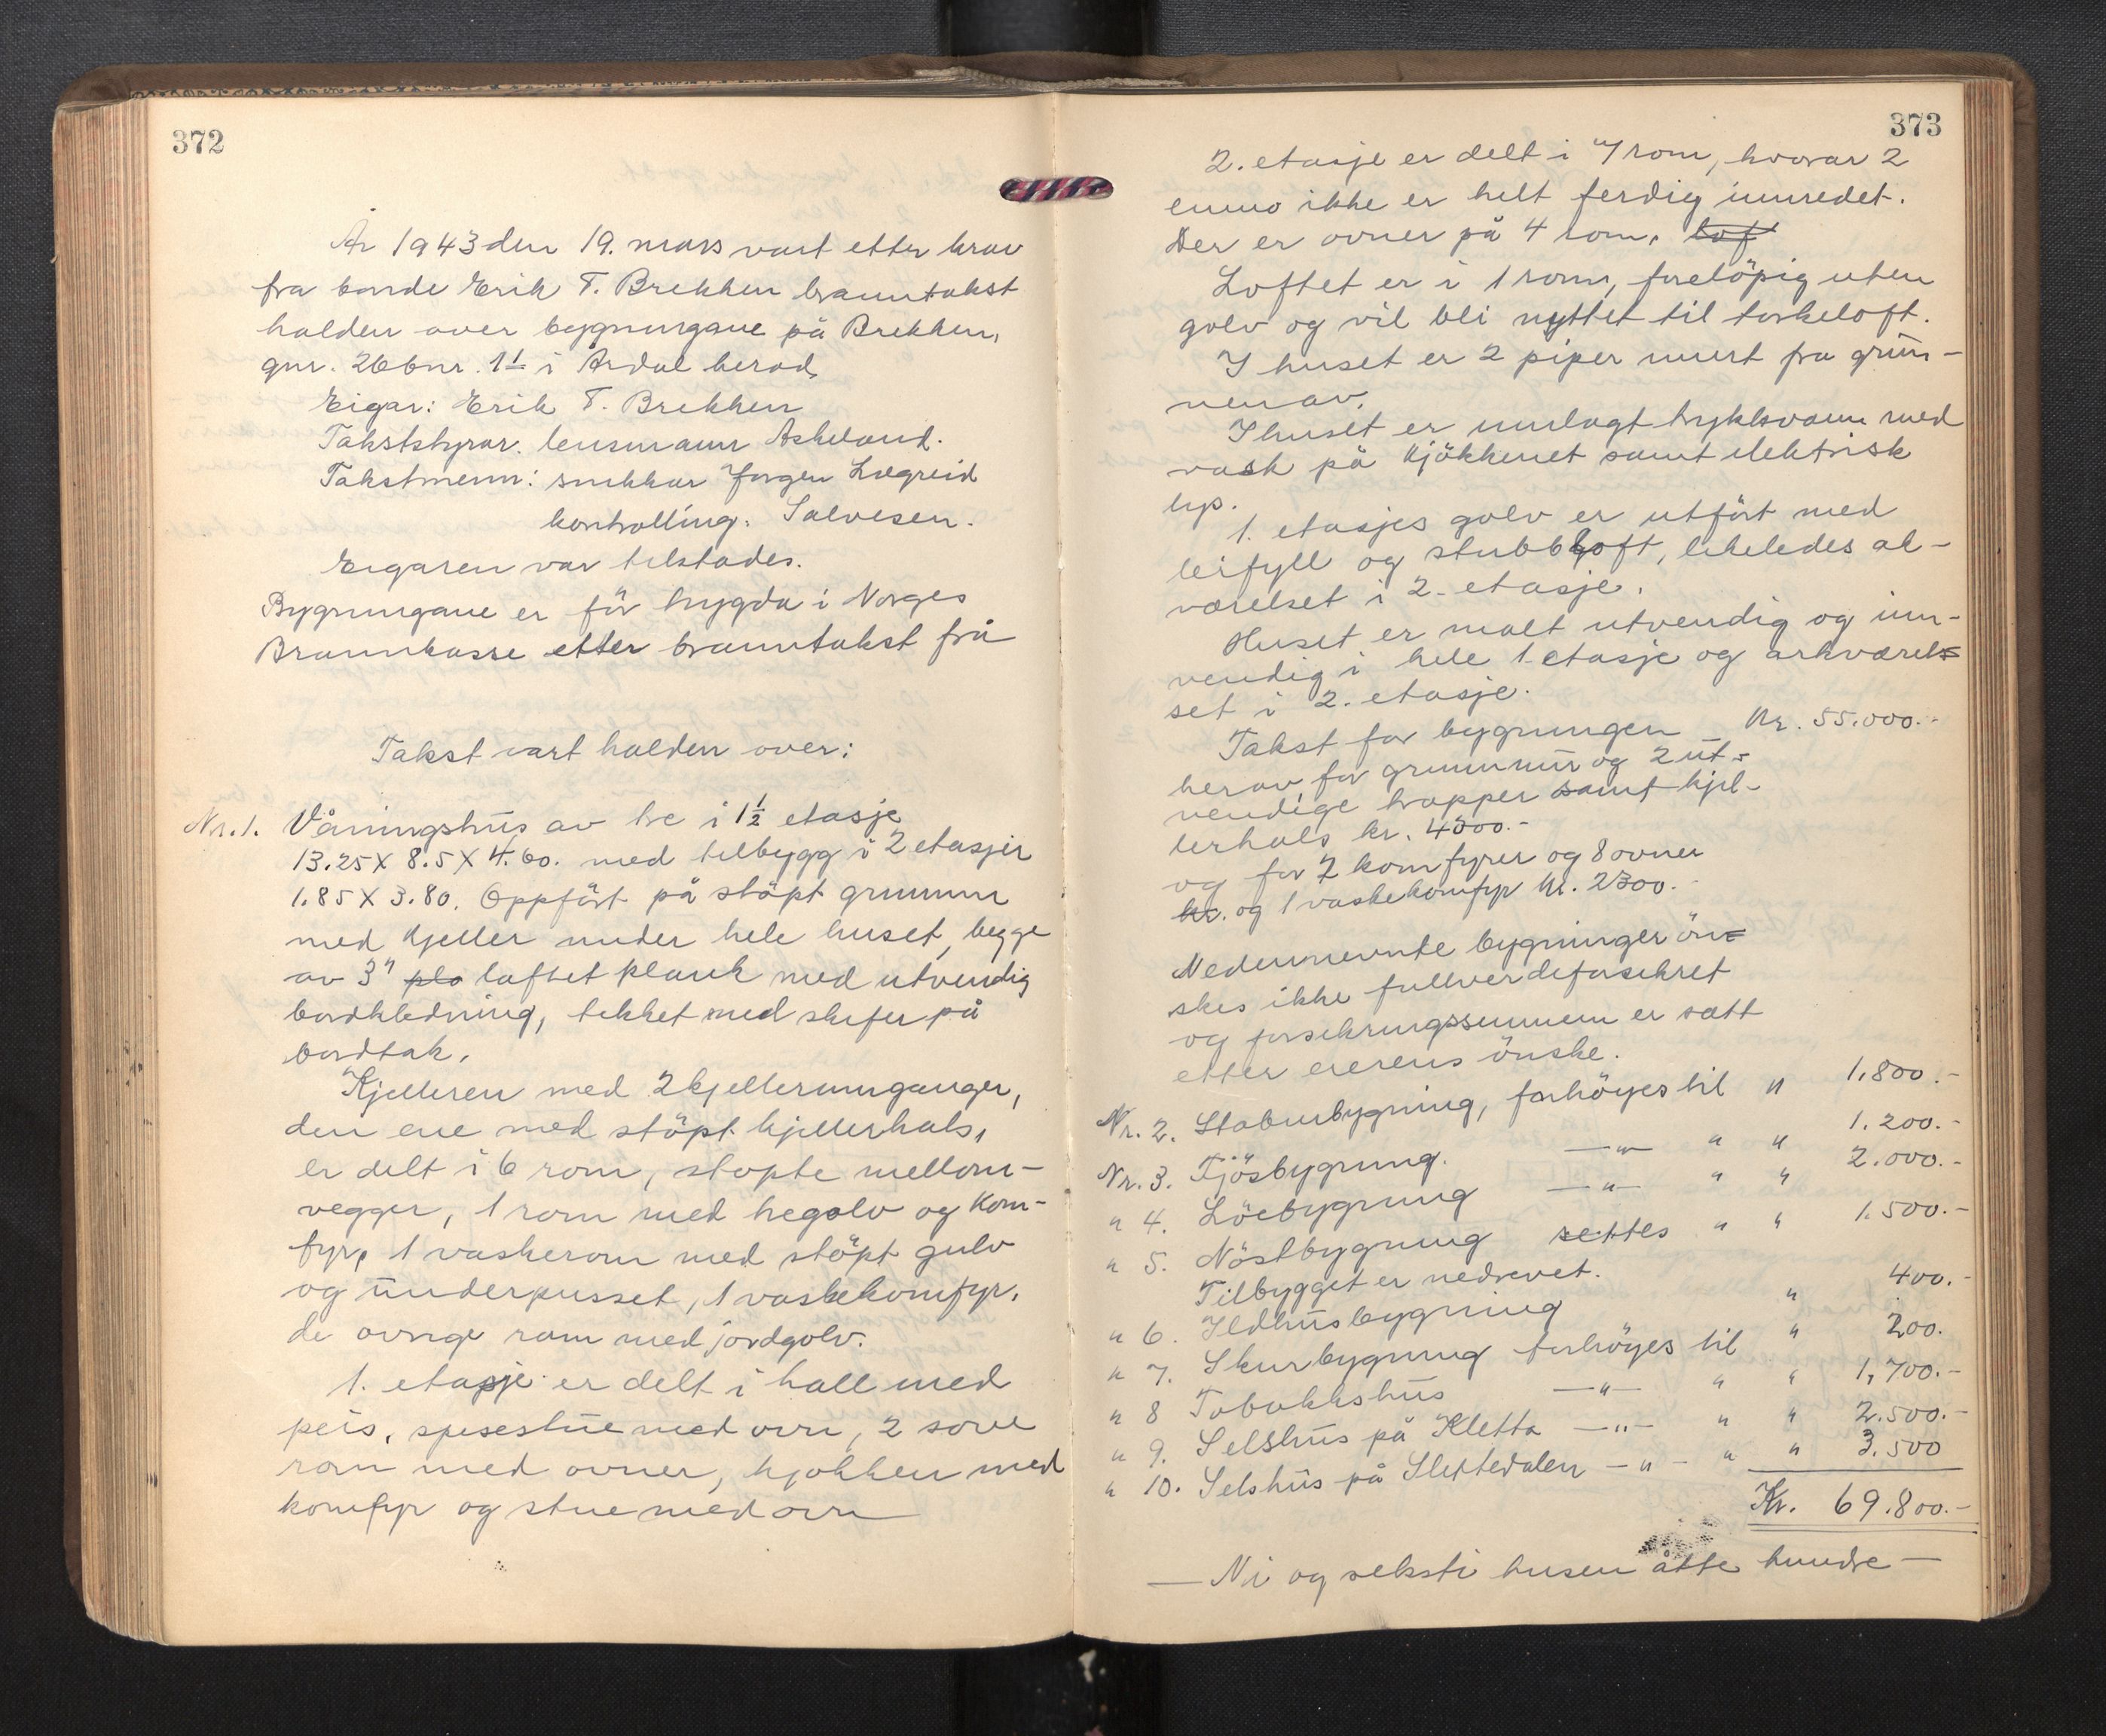 372
År 1943 den 19. mars vart etter krav
fra bonde Erik T. Brekken branntakst
halden over bygningane på Brekken,
gnr. 26 bnr. 11 i Årdal herad.
Eigar: Erik T. Brekken
Takststyrar: lensmann Askeland.
Takstmenn: snikkar Jørgen Lægreid
kontrolling. Salvesen.
Eigaren var tilstades.
Bygningane er för trygda i Norges
Brannkasse etter branntakst frå
Takst vart halden over:
Nr. 1. Våningshus av tre i 1½ etasje
13.25 X 8.5 X 4.60. med tilbygg i 2 etasjer
1.85 X 3.80. Oppfört på stöpt grunnmur
med kjeller under hele huset, begge
av 3" pla laftet plank med utvendig
bordkledning, tekket med skifer på
bordtak.
Kjelleren med 2 kjellerinnganger,
den ene med stöpt kjellerhals,
er delt i 6 rom, stopte mellom-
vegger, 1 rom med tregolv og kom-
fyr, 1 vaskerom med stöpt gulv
og underpusset, 1 vaskekomfyr,
de ovrige rom med jordgolv.
1. etasje er delt i hall med
peis, spisestue med ovn, 2 sove
rom med ovner, kjokken med
komfyr og stue med ovn
373
2. etasje er delt i 7 rom, hvorav 2
enno ikke er helt ferdig innredet.
Der er ovner på 4 rom. lof
Loftet er i 1 rom, forelöpig uten
golv og vil bli nyttet til torkeloft.
I huset er 2 piper murt fra grun-
nen av.
I huset er innlagt trykkvann med
vask på kjökkenet samt elektrisk
lys.
1. etasjes golv er utfört med
leirfyll og stubbloft, likeledes ak-
værelset i 2. etasje.
Huset er malt utvendig og inn-
vendig i hele 1. etasje og arkværel-
set i 2. etasje.
Takst for bygningen Kr. 55.000.-
herav for grunnmur og 2 ut-
vendige trapper samt kjel-
lerhals kr. 4000.-
og for 2 komfyrer og 8 ovner
kr. og 1 vaskekomfyr kr. 2300.-
Nedennevnte bygninger ön-
skes ikke fullverdeforsikret
og forsikringssummen er satt
etter eierens önske.
Nr. 2. Stabursbygning, forhöyes til " 1.800.-
Nr. 3. Fjösbygning. —"— " " 1.200.-
" 4. Löebygning —"— " " 2.000.-
" 5. Nöstbygning settes " " 1.500.-
Tilbygget er nedrevet.
" 6. Ildhusbygning " 400.-
" 7. Skurbygning forhöyes til " 200.
" 8 Tobakkshus —"— " " 1,700.-
" 9. Selshus på Kletta —"— " " 2.500.-
" 10. Selshus på Slettedalen —"— " " 3.500
Kr. 69.800.-
— Ni og seksti tusen åtte hundre —